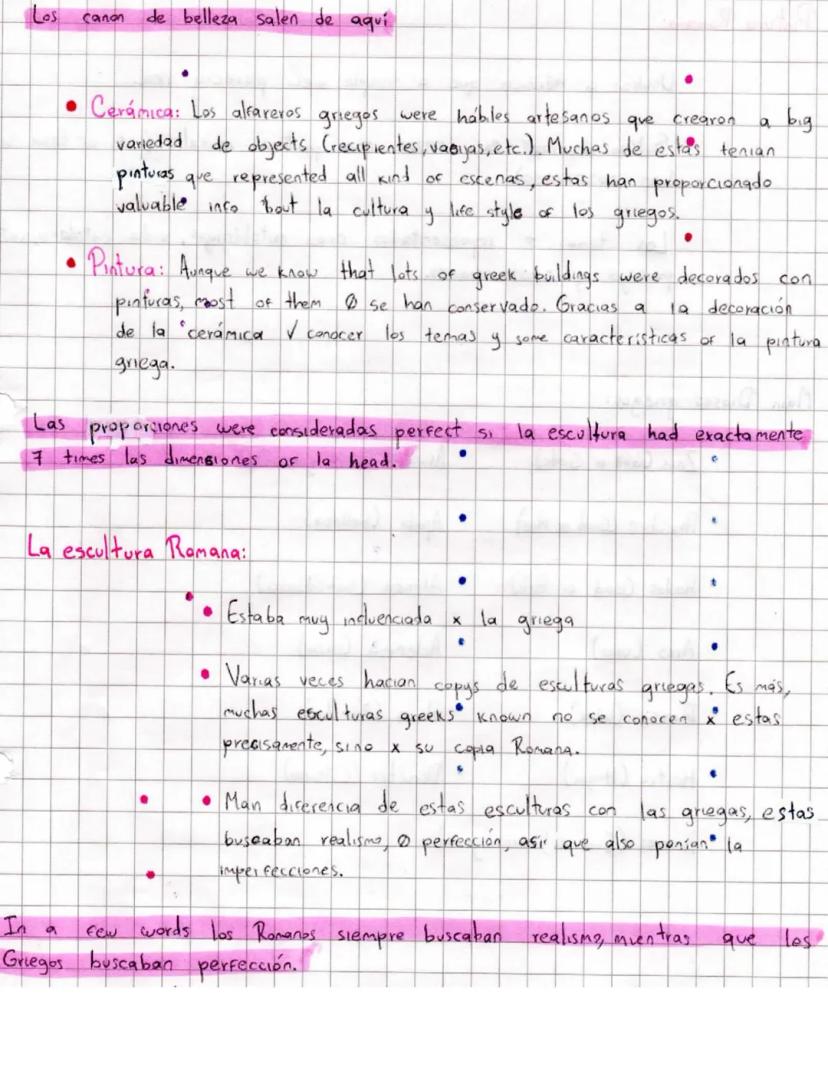 Los canon de belleza salen de aquí
• Cerámica: Los alfareros griegos were hábiles artesanos que crearon a big
variedad de objects (recipientes, vasijas, etc.). Muchas de estas tenian
pinturas que represented all kind of escenas, estas han proporcionado
valuable info 'bout la cultura y life style of los griegos.
• Pintura: Aunque we know that lots of greek buildings were decorados con
pinturas, most of them Ø se han conservado. Gracias a la decoración
de la cerámica √ conocer los temas y some caracteristicas of la pintura
griega.
Las proporciones were consideradas perfect si la escultura had exactamente
7 times las dimensiones of la head.
La escultura Romana:
• Estaba muy influenciada x la griega
• Varias veces hacian copys de esculturas griegas. Es más,
muchas esculturas greeks known no se conocen x estas
precisamente, sino x su copia Romana.
• Man diferencia de estas esculturas con las griegas, estas
buscaban realismo, Ø perfección, asir que also ponian la
imperfecciones.
In a few words los Romanos siempre buscaban realismo, mientras que los
Griegos buscaban perfección.